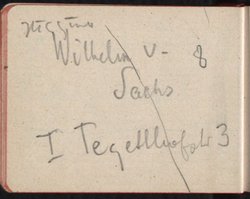 Wilhelm v - 8
Sachs
I Tegetthofstr 3